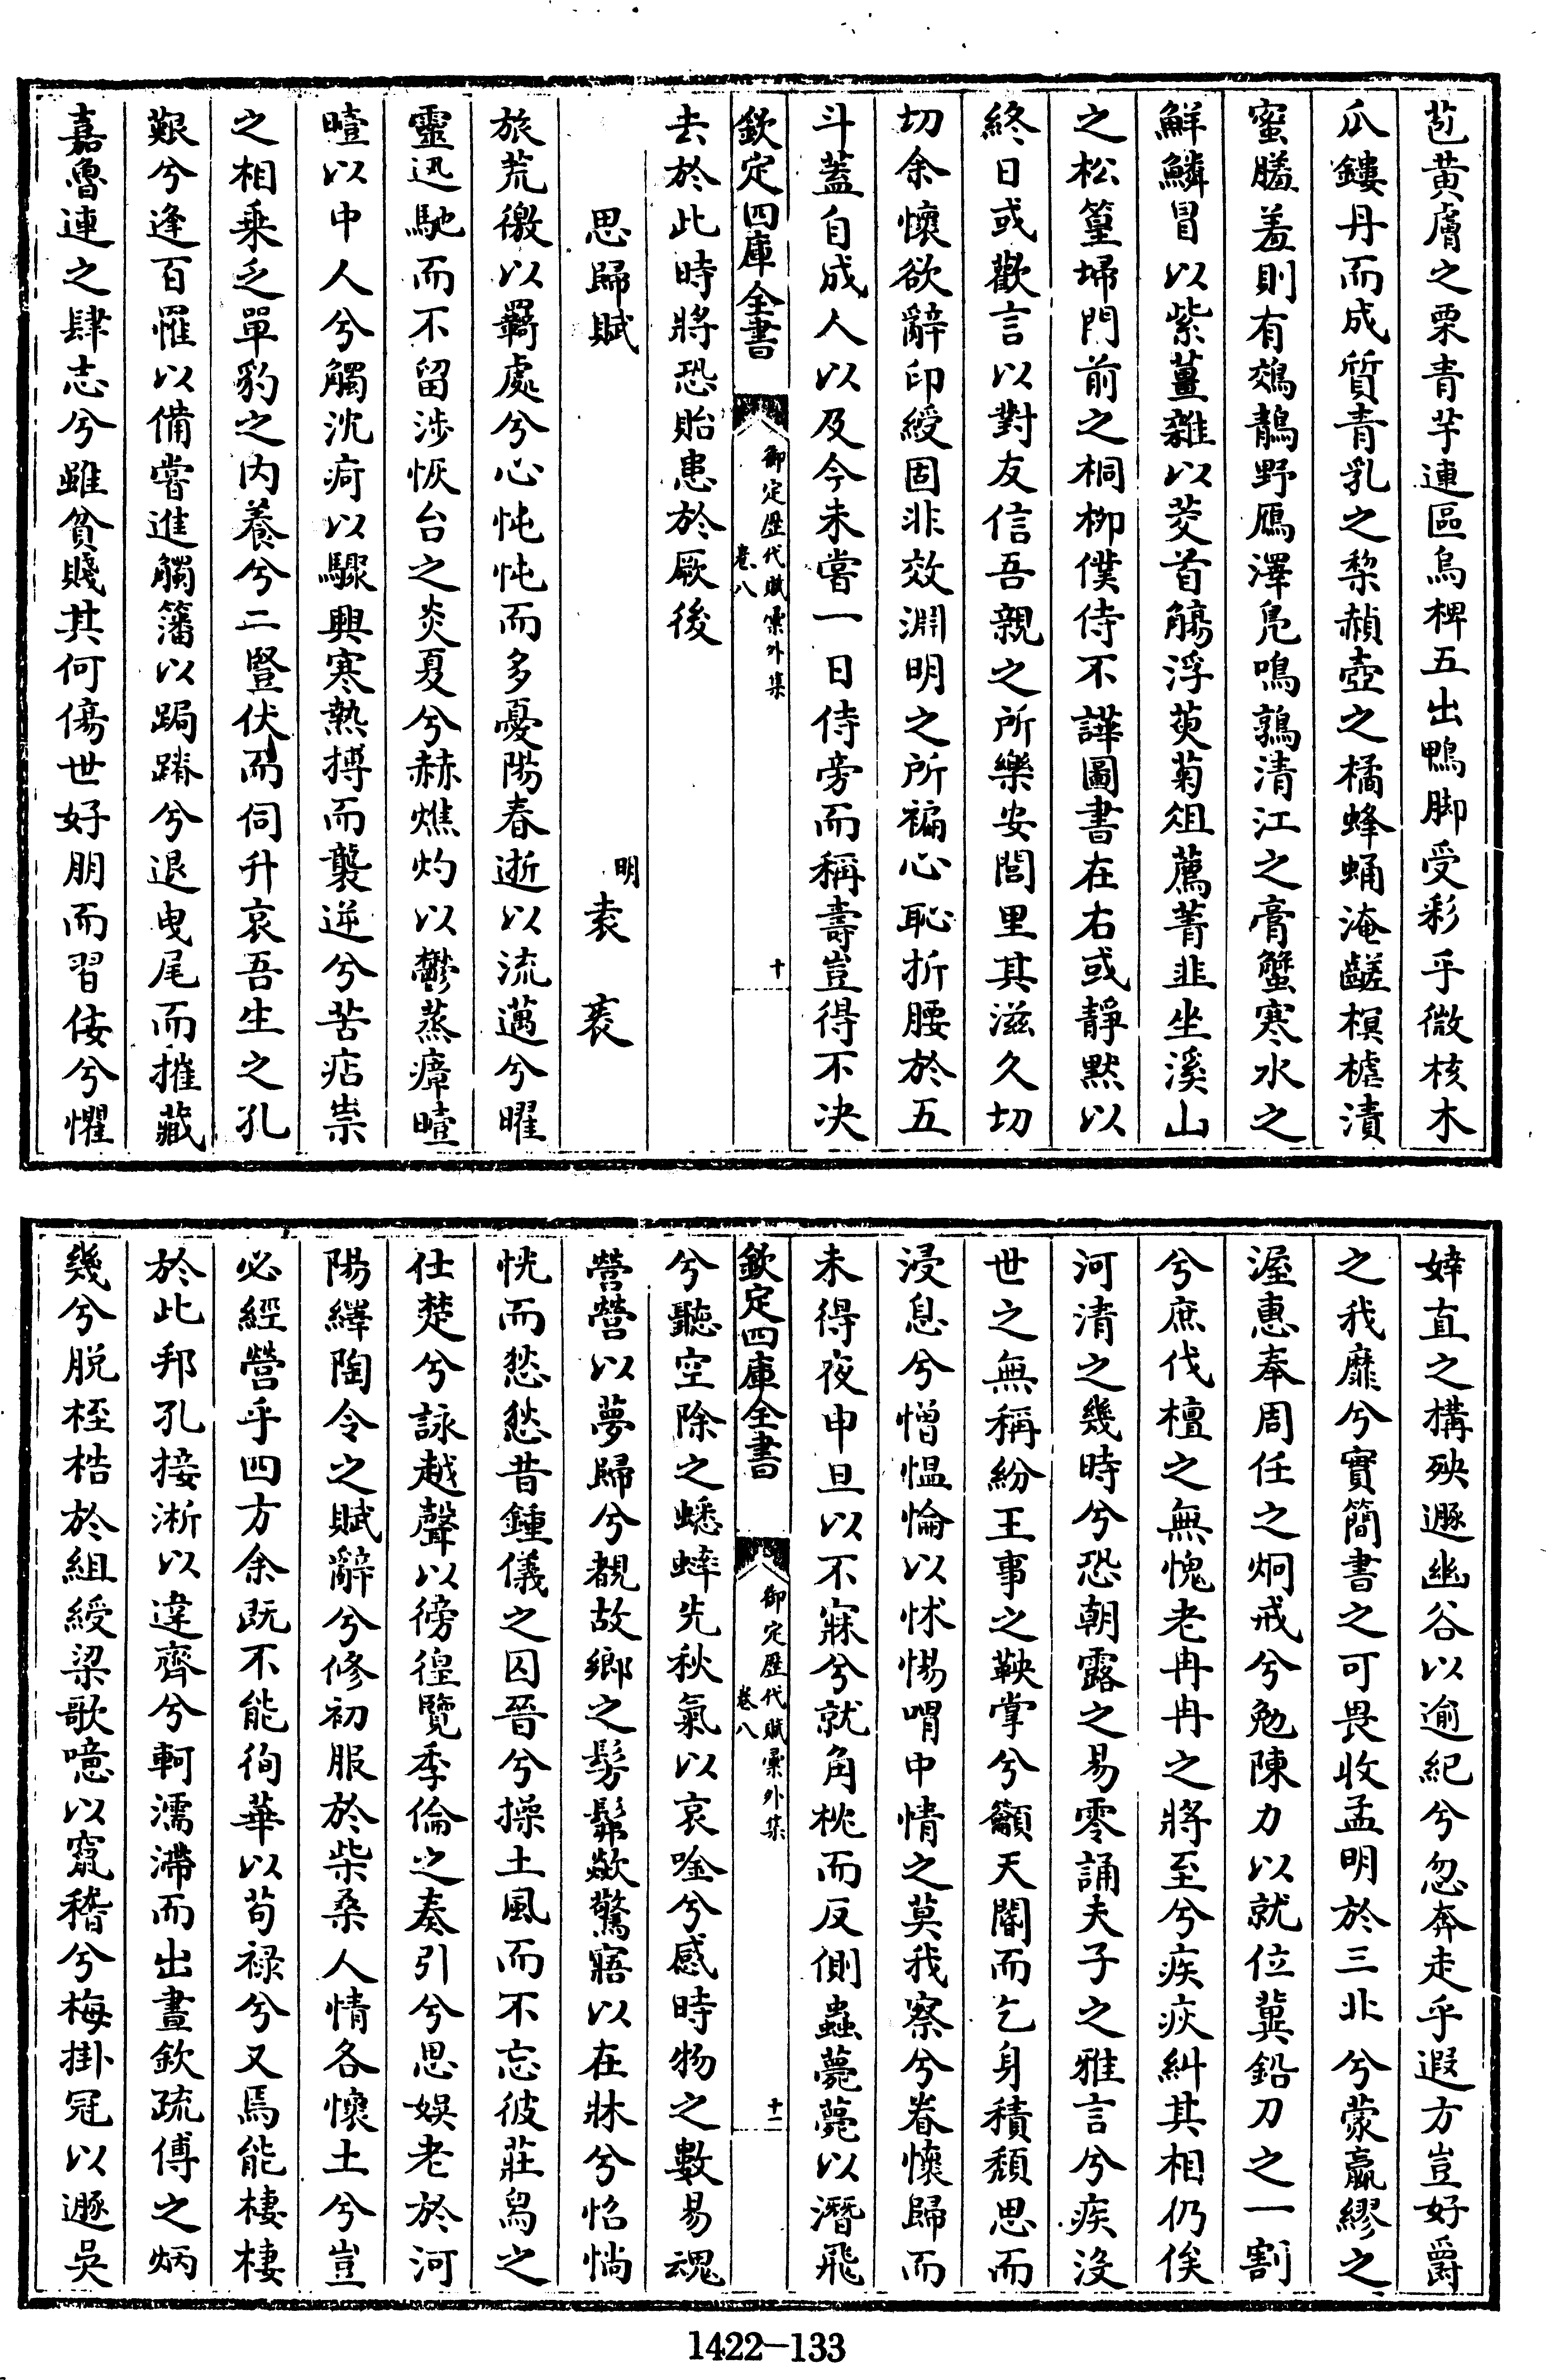 苞黄膚之栗青芋連區烏椑五出鴨脚受彩乎微核木
瓜鏤丹而成質青乳之棃赬壺之橘蜂蛹淹䶥榠樝漬
蜜賸羞則有鵁鶄野鴈澤鳬鳴鶉清江之膏蟹寒水之
鮮鱗冒以紫薑雜以茭首觴浮萸菊俎薦菁韭坐溪山
之松篁埽門前之桐栁僕侍不譁圖書在右或靜黙以
終日或歡言以對友信吾親之所樂安閭里其滋久切
切余懷欲辭印綬固非效淵明之所褊心恥折腰於五
斗蓋自成人以及今未嘗一日侍旁而稱壽豈得不决
欽定四庫全書
御定歴代賦彙外集
卷八
十
去於此時將恐貽患於厥後
思歸賦
明
袁袠
旅荒徼以羇處兮心忳忳而多憂陽春逝以流邁兮曜
靈迅馳而不留涉恢台之炎夏兮赫燋灼以鬱蒸瘴曀
曀以中人兮觸沈疴以驟興寒熱摶而襲逆兮苦痁祟
之相乗乏單豹之内養兮二豎伏而伺升哀吾生之孔
艱兮逢百罹以備嘗進觸籓以跼蹐兮退曳尾而摧藏
嘉魯連之肆志兮雖貧賤其何傷世好朋而習佞兮懼
婞直之構殃遯幽谷以逾紀兮忽奔走乎遐方豈好爵
之我靡兮實簡書之可畏收孟明於三北兮蒙嬴繆之
渥惠奉周任之炯戒兮勉陳力以就位冀鉛刀之一割
兮庶伐檀之無愧老冉冉之將至兮疾疢糾其相仍俟
河清之幾時兮恐朝露之易零誦夫子之雅言兮疾沒
世之無稱紛王事之鞅掌兮籲天閽而乞身積頽思而
浸息兮憎愠惀以怵惕喟中情之莫我察兮眷懷歸而
未得夜申旦以不寐兮就角枕而反側蟲薨薨以潛飛
欽定四庫全書
御定歴代賦彙外集
卷八
十一
兮聽空除之蟋蟀先秋氣以哀唫兮感時物之數易魂
營營以夢歸兮覩故鄉之髣髴歘驚寤以在牀兮怊惝
恍而愁愁昔鍾儀之囚晉兮操土風而不忘彼莊舄之
仕楚兮詠越聲以徬徨覽季倫之奏引兮思娛老於河
陽繹陶令之賦辭兮修初服於柴桑人情各懷土兮豈
必經營乎四方余既不能徇華以茍禄兮又焉能棲棲
於此邦孔接淅以違齊兮軻濡滯而出晝欽疏傅之炳
幾兮脱桎梏於組綬梁歌噫以竄稽兮梅掛冠以遯吳
1422—133